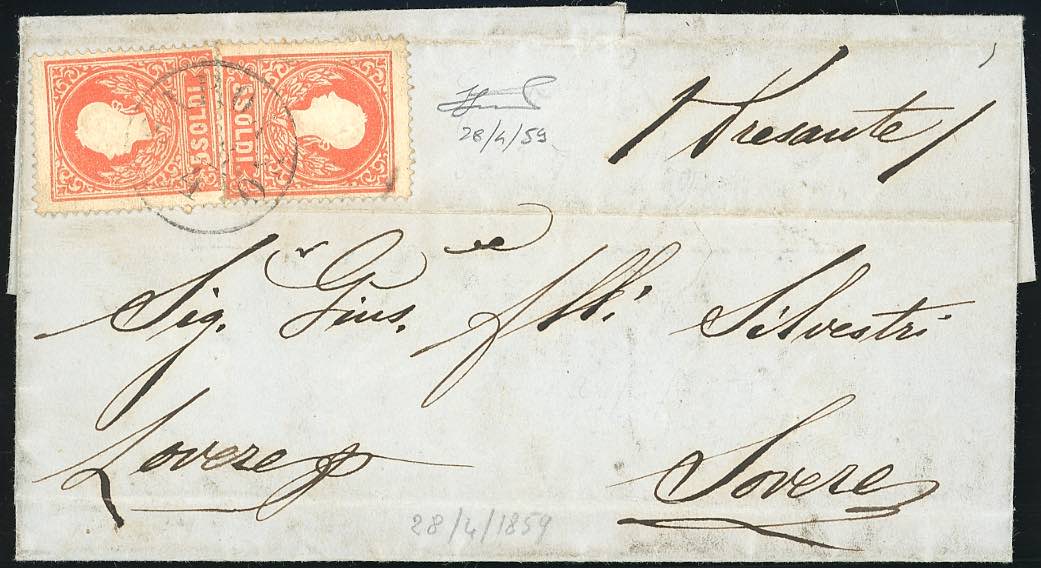 5 SOLDI
5 SOLDI
28/4/59
/ Presante /
Sig.r Gius.e flli: Silvestri
Lovere p Sovere
28/4/1859